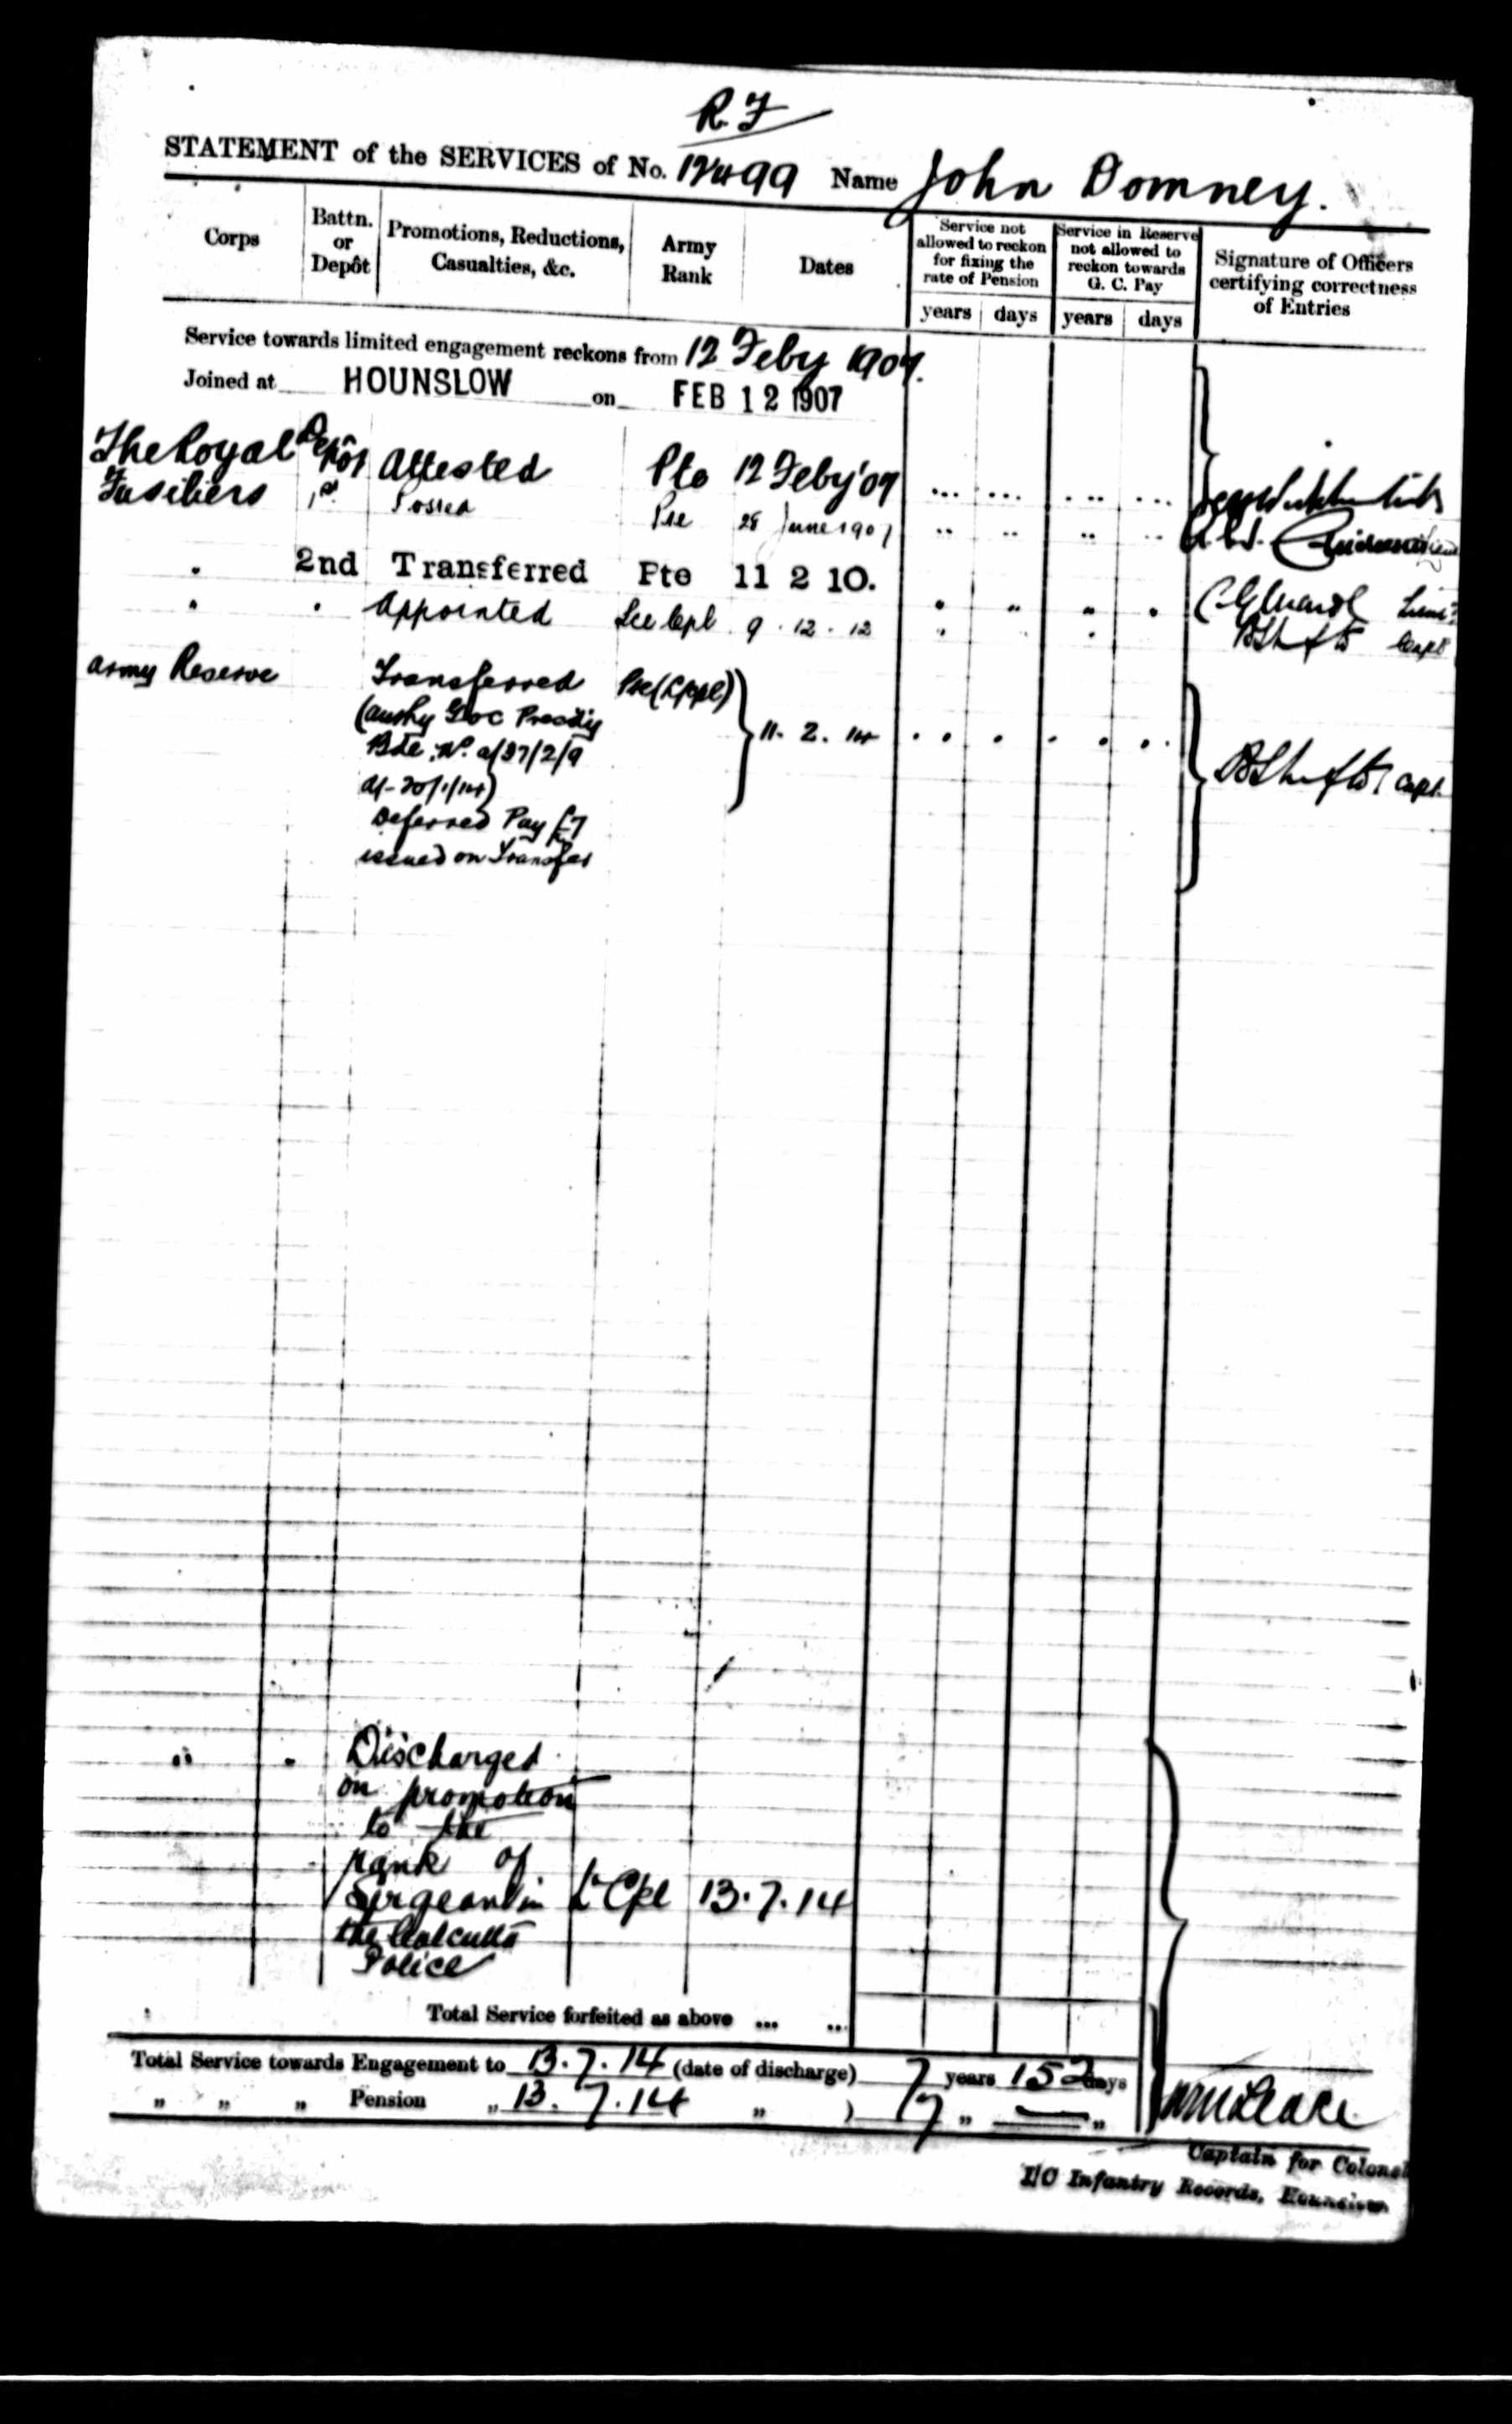 R.F
STATEMENT of the SERVICES of No. 12499 Name John Domney.
Corps
Battn. or Depôt
Promotions, Reductions, Casualties, &c.
Army Rank
Dates
Service not allowed to reckon for fixing the rate of Pension
Service in Reserve not allowed to reckon towards G. C. Pay
Signature of Officers certifying correctness of Entries
years days years days
Service towards limited engagement reckons from 12 Feby 1907.
Joined at HOUNSLOW on FEB 12 1907
The Royal Depôt Attested Pte 12 Feby '07
Fusiliers 1st Posted Pte 28 June 1907
" 2nd Transferred Pte 11 2 10.
" " Appointed Lce Cpl 9.12.12 Capt
Army Reserve Transferred Pte (L/Cpl) 11.2.14
(authy GOC Presdy
Bde. No. a/37/2/9
d/- 20/1/14) Capt.
Deferred Pay £7
issued on Transfer
" " Discharged
on promotion
to the
rank of
Sergeant in L/Cpl 13.7.14
the Calcutta
Police
Total Service forfeited as above ... ...
Total Service towards Engagement to 13.7.14 (date of discharge) 7 years 152 days
" " " Pension " 13.7.14 " ) 7 " — "
Captain for Colonel
I/C Infantry Records, Hounslow